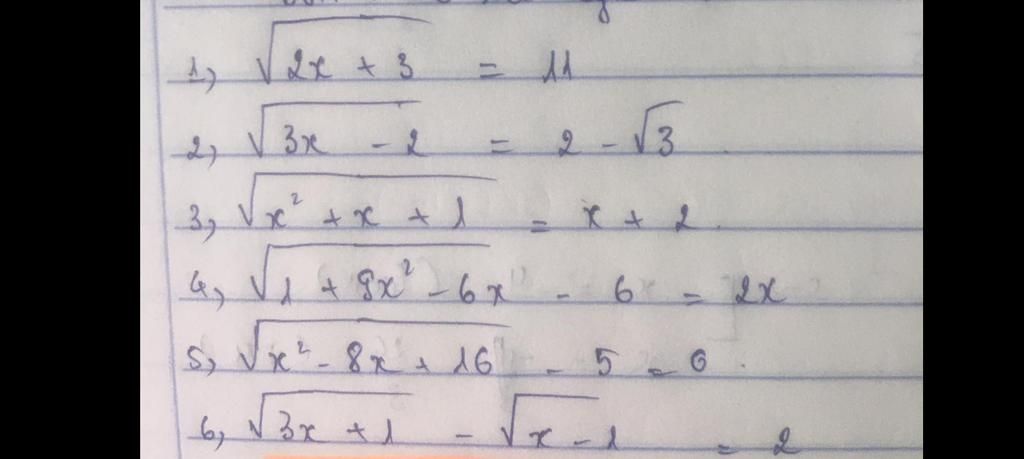 1, √2x + 3 = 11
2, √3x - 2 = 2 - √3
3, √x² + x + 1 = x + 2
4, √1 + 9x² - 6x - 6 = 2x
5, √x² - 8x + 16 - 5 = 0
6, √3x + 1 - √x - 1 = 2